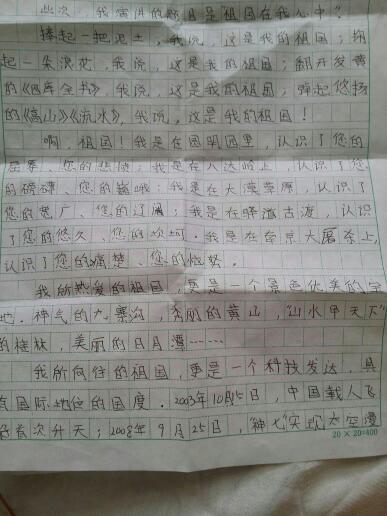 此次，我演讲的题目是"祖国在我心中"！
捧起一把泥土，我说，这是我的祖国；掬
起一朵浪花，我说，这是我的祖国；翻开发黄
的《四库全书》，我说，这是我的祖国；弹起悠扬
的《高山》《流水》，我说，这是我的祖国！
啊，祖国！我是在圆明园里，认识了您的
屈辱、您的悲愤；我是在八达岭上，认识了您
的磅礴、您的巍峨；我是在大漠草原，认识了
您的宽广、您的辽阔；我是在驿道古渡，认识
了您的悠久、您的。我是在南京大屠杀上，
认识了您的痛楚、您的愤怒。
我所热爱的祖国，更是一个景色优美的
地。神气的九寨沟，美丽的黄山，"山水甲天下"
的桂林，美丽的日月潭……
我所向往的祖国，更是一个科技发达，具
有国际地位的国度。2003年10月15日，中国载人飞
船首次升天；2008年9月25日，"神七"实现太空漫
20×20=400